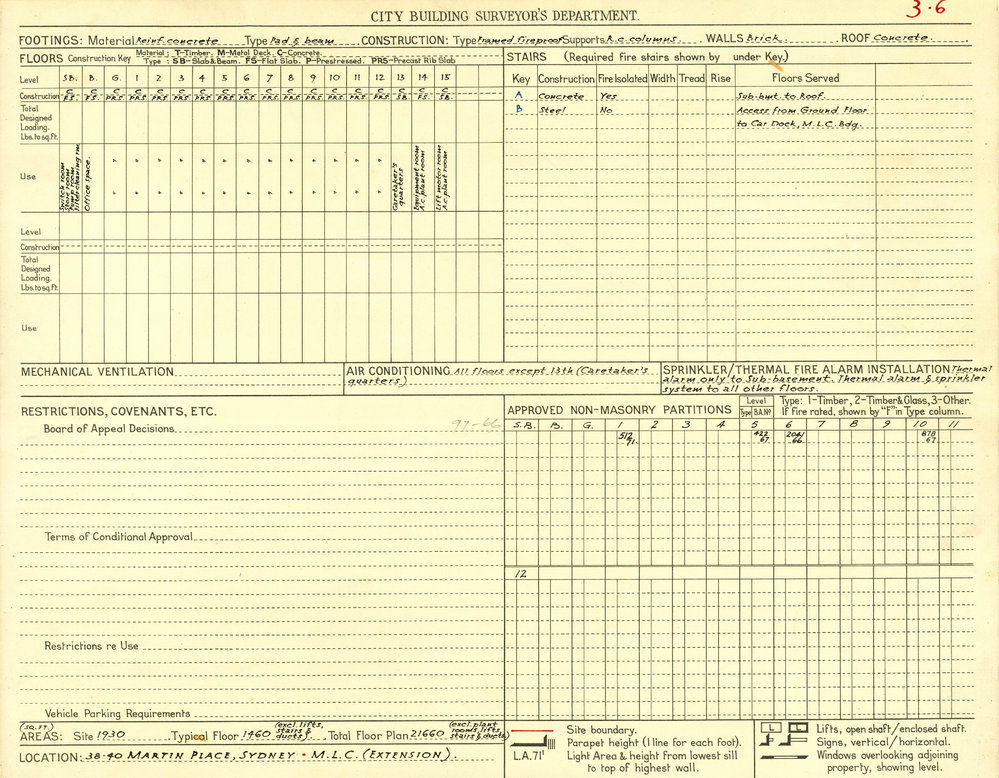 3·6
CITY BUILDING SURVEYOR'S DEPARTMENT.
FOOTINGS: Material Reinf. concrete Type Pad & beam CONSTRUCTION: Type Framed fireproof Supports R.c. columns. WALLS Brick. ROOF Concrete
FLOORS Construction Key Material: T-Timber. M-Metal Deck. C-Concrete.
Type: SB-Slab & Beam. FS-Flat Slab. P-Prestressed. PRS-Precast Rib Slab
Level S.B. B. G. 1 2 3 4 5 6 7 8 9 10 11 12 13 14 15
Construction C C C C C C C C C C C C C C C C C C
F.S. F.S. P.R.S. P.R.S. P.R.S. P.R.S. P.R.S. P.R.S. P.R.S. P.R.S. P.R.S. P.R.S. P.R.S. P.R.S. P.R.S. S.B. F.S. S.B.
Total
Designed
Loading.
Lbs. to sq. ft.
Use
Switch room
Store room
Pump room
Filter cleaning rm.
Office space.
" " " " " " " " " " " " "
" " " " " " " " " " " " "
Caretaker's
quarters
Equipment room
A.c. plant room
Lift motor room
A.c. plant room
Level
Construction
Total
Designed
Loading.
Lbs. to sq. ft.
Use
STAIRS (Required fire stairs shown by under Key.)
Key Construction Fire Isolated Width Tread Rise Floors Served
A Concrete Yes Sub-bmt. to Roof.
B Steel No Access from Ground Floor
to Car Dock, M.L.C. Bdg.
MECHANICAL VENTILATION
AIR CONDITIONING All floors except 13th (Caretaker's
quarters)
SPRINKLER/THERMAL FIRE ALARM INSTALLATION Thermal
alarm only to Sub-basement. Thermal alarm & sprinkler
system to all other floors.
RESTRICTIONS, COVENANTS, ETC.
Board of Appeal Decisions 97-66
Terms of Conditional Approval
Restrictions re Use
Vehicle Parking Requirements
APPROVED NON-MASONRY PARTITIONS Level Type: 1-Timber, 2-Timber & Glass, 3-Other.
Type B.A. Nº If Fire rated, shown by "F" in Type column.
S.B. B. G. 1 2 3 4 5 6 7 8 9 10 11
512 422 2041 878
71. 67 66. 67
12
(SQ. FT.) (excl. lifts, stairs & ducts) (excl. plant rooms, lifts, stairs & ducts)
AREAS: Site 1930 Typical Floor 1460 Total Floor Plan 21660
LOCATION: 38-40 MARTIN PLACE, SYDNEY · M.L.C. (EXTENSION)
Site boundary.
Parapet height (1 line for each foot).
L.A. 71' Light Area & height from lowest sill
to top of highest wall.
L L Lifts, open shaft/enclosed shaft.
Signs, vertical/horizontal.
Windows overlooking adjoining
property, showing level.